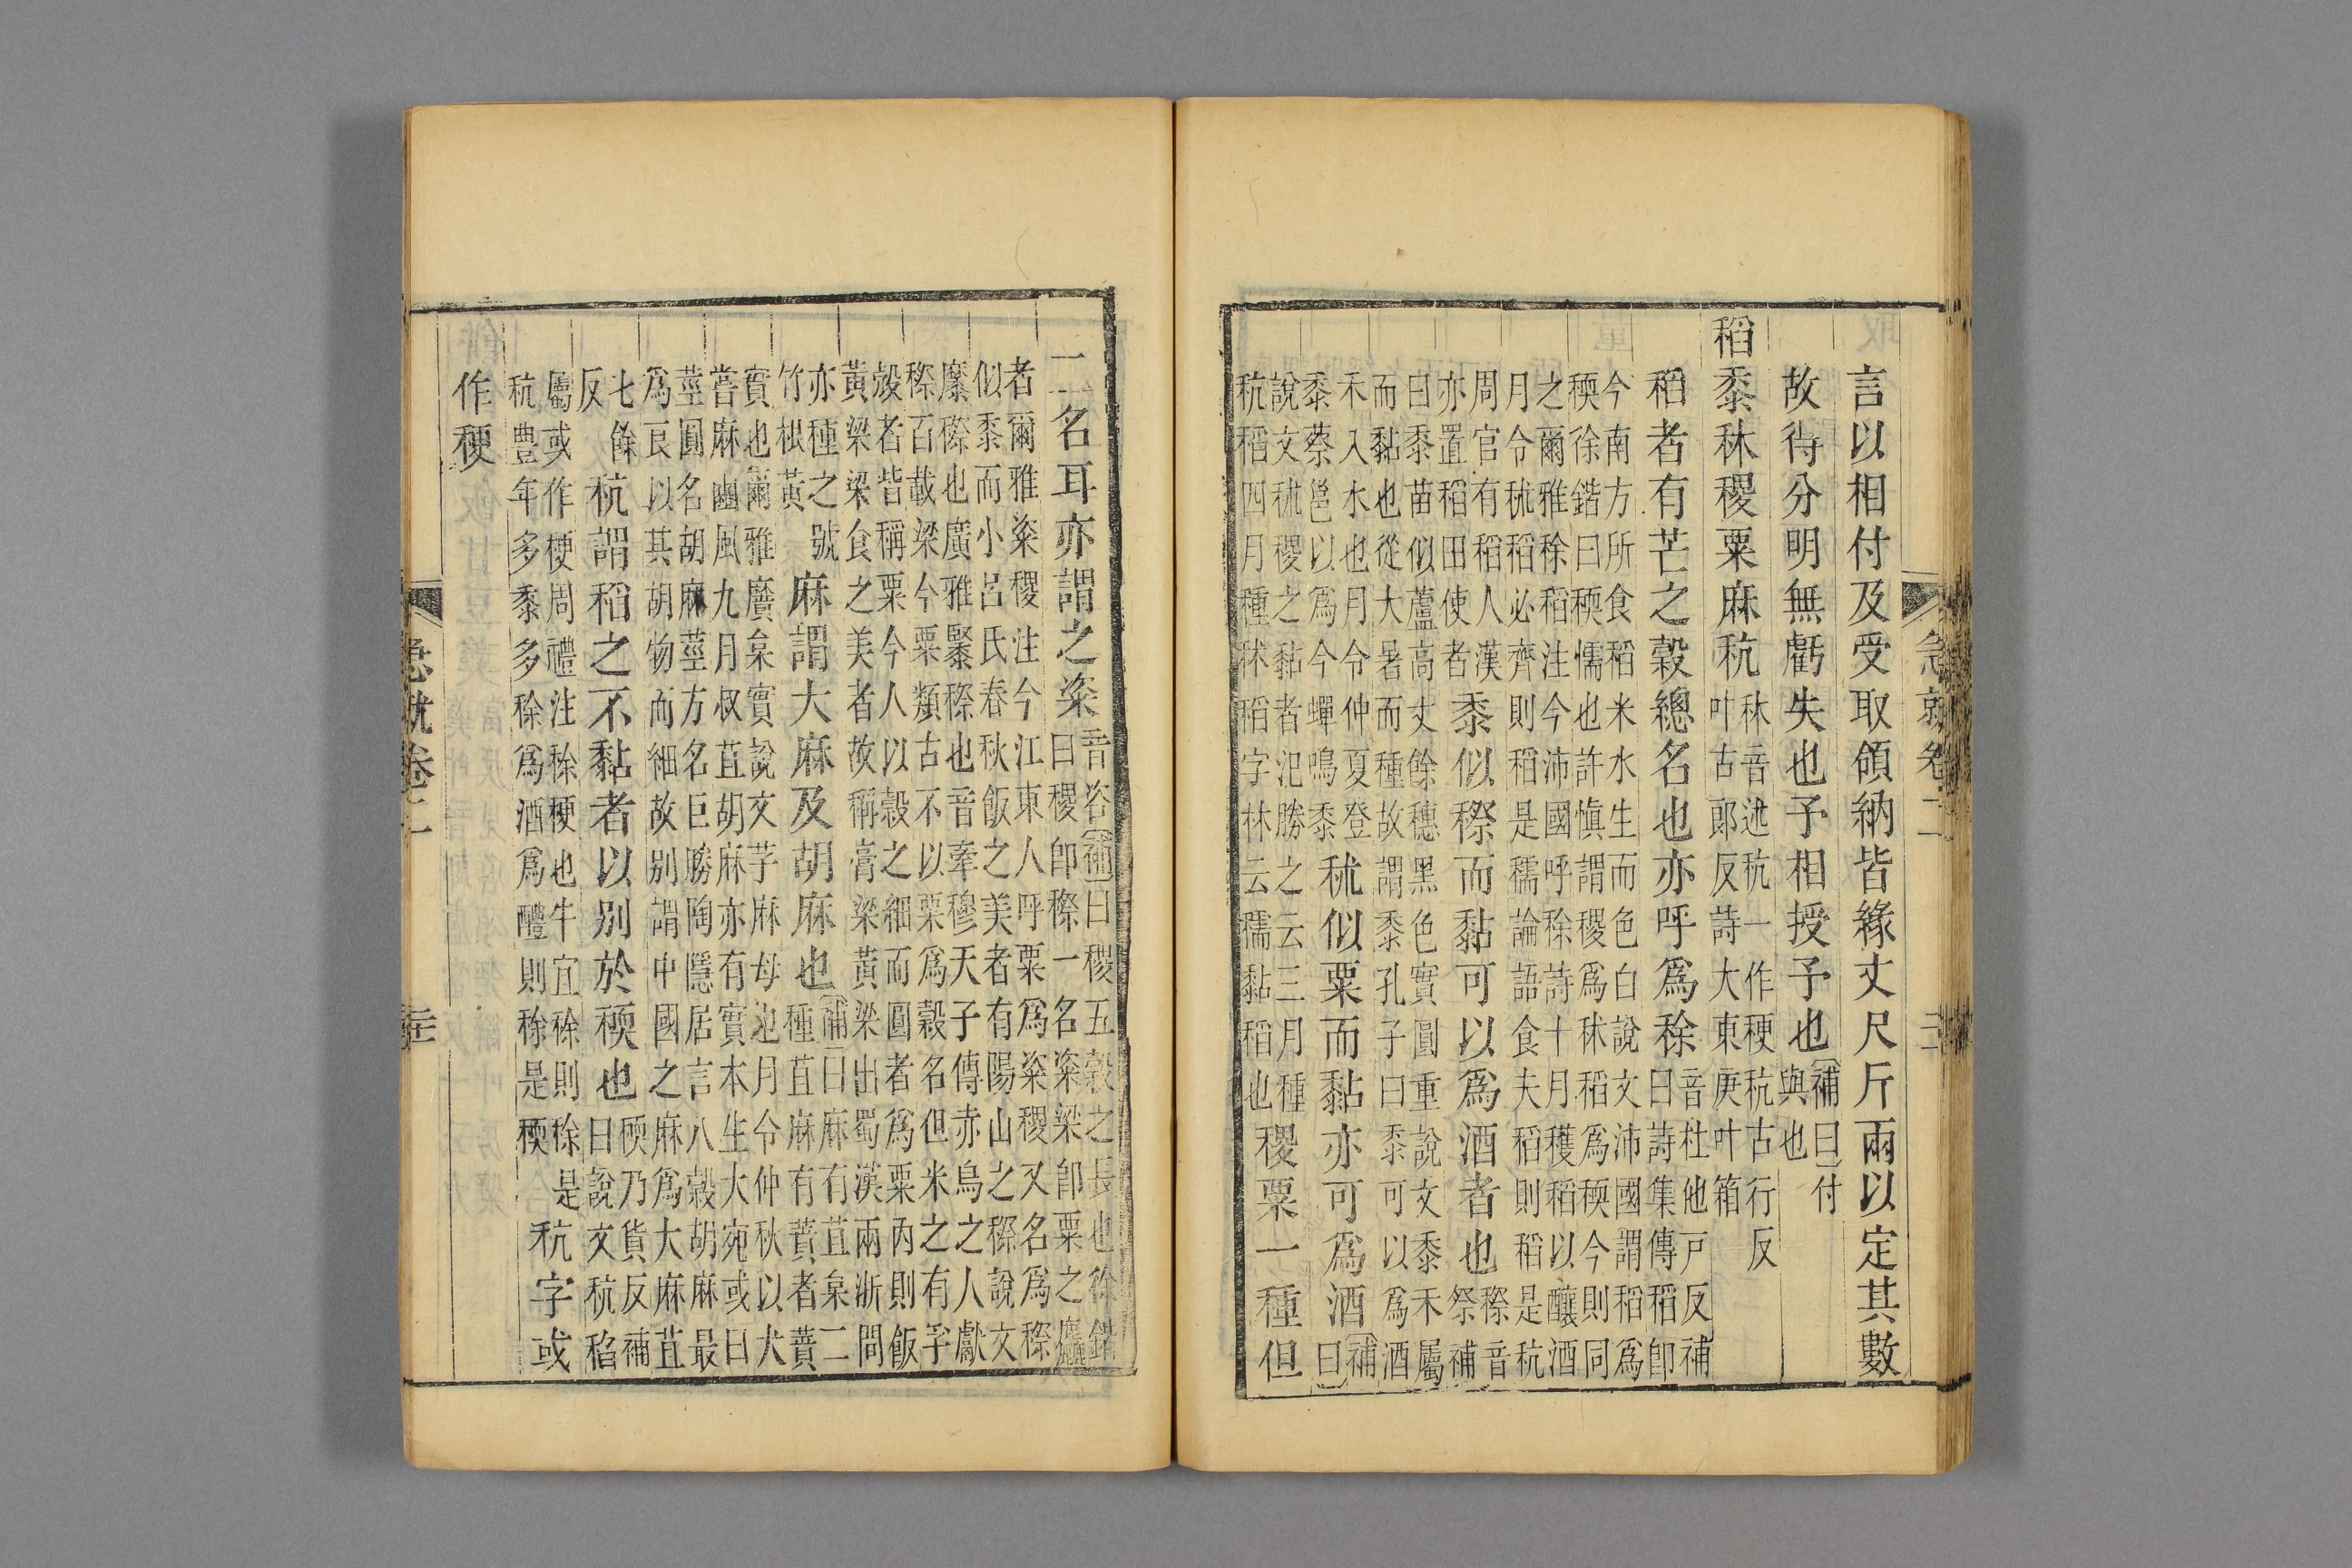 急就卷二
言以相付及受取領納皆緣丈尺斤兩以定其數
故待分明無虧失也予相授予也補曰付
與也
稻黍秫稷粟麻秔秫音述秔一作稉秔古行反
叶古郎反詩大東庚叶箱
稻者有芒之穀總名也亦呼為稌音杜他戸反補
曰詩集傳稻卽
今南方所食稻米水生而色白說文沛國謂稻為
稬徐鍇曰稬懦也許慎謂稷為秫稻為稬今則同
之爾雅稌稻注今沛國呼稌詩十月穫稻以釀酒
月令秫稻必齊則稻是穤論語食夫稻則稻是秔
周官有稻人漢
亦置稻田使者黍似穄而黏可以為酒者也穄音
祭補
曰黍苗似蘆高丈餘穗黑色實圓重說文黍禾屬
而黏也從大暑而種故謂黍孔子曰黍可以為酒
禾入水也月令仲夏登
黍蔡邕以為今蟬鳴黍秫似粟而黏亦可為酒補
曰
說文秫稷之黏者氾勝之云三月種
秔稻四月種秫稻字林云穤黏稻也稷粟一種但
二名耳亦謂之粢音咨補曰稷五穀之長也徐鍇
曰稷卽穄一名粢粱卽粟之
者爾雅粢稷注今江東人呼粟為粢稷又名為穄
似黍而小呂氏春秋飯之美者有陽山之穄說文
穈穄也廣雅䵖穄也音牽穆天子傳赤烏之人獻
穄百載粱今粟類古不以粟為穀名但米之有孚
殼者皆稱粟今人以穀之細而圓者為粟内則飯
黃粱粱食之美者故稱膏粱黃粱出蜀漢兩浙間
亦種之號
竹根黃麻謂大麻及胡麻也補曰麻有苴枲二
種苴麻有蕡者蕡
實也爾雅黂枲實說文芓麻母也月令仲秋以犬
嘗麻豳風九月叔苴胡麻亦有實本生大宛或曰
莖圓名胡麻莖方名巨勝陶隱居言八穀胡麻最
為良以其胡物而細故别謂中國之麻為大麻苴
七餘
反秔謂稻之不黏者以别於稬也稬乃貨反補
曰說文秔稻
屬或作稉周禮注稌稉也牛宜稌則稌是
秔豐年多黍多稌為酒為醴則稌是稬秔字或
作稉
急就卷二